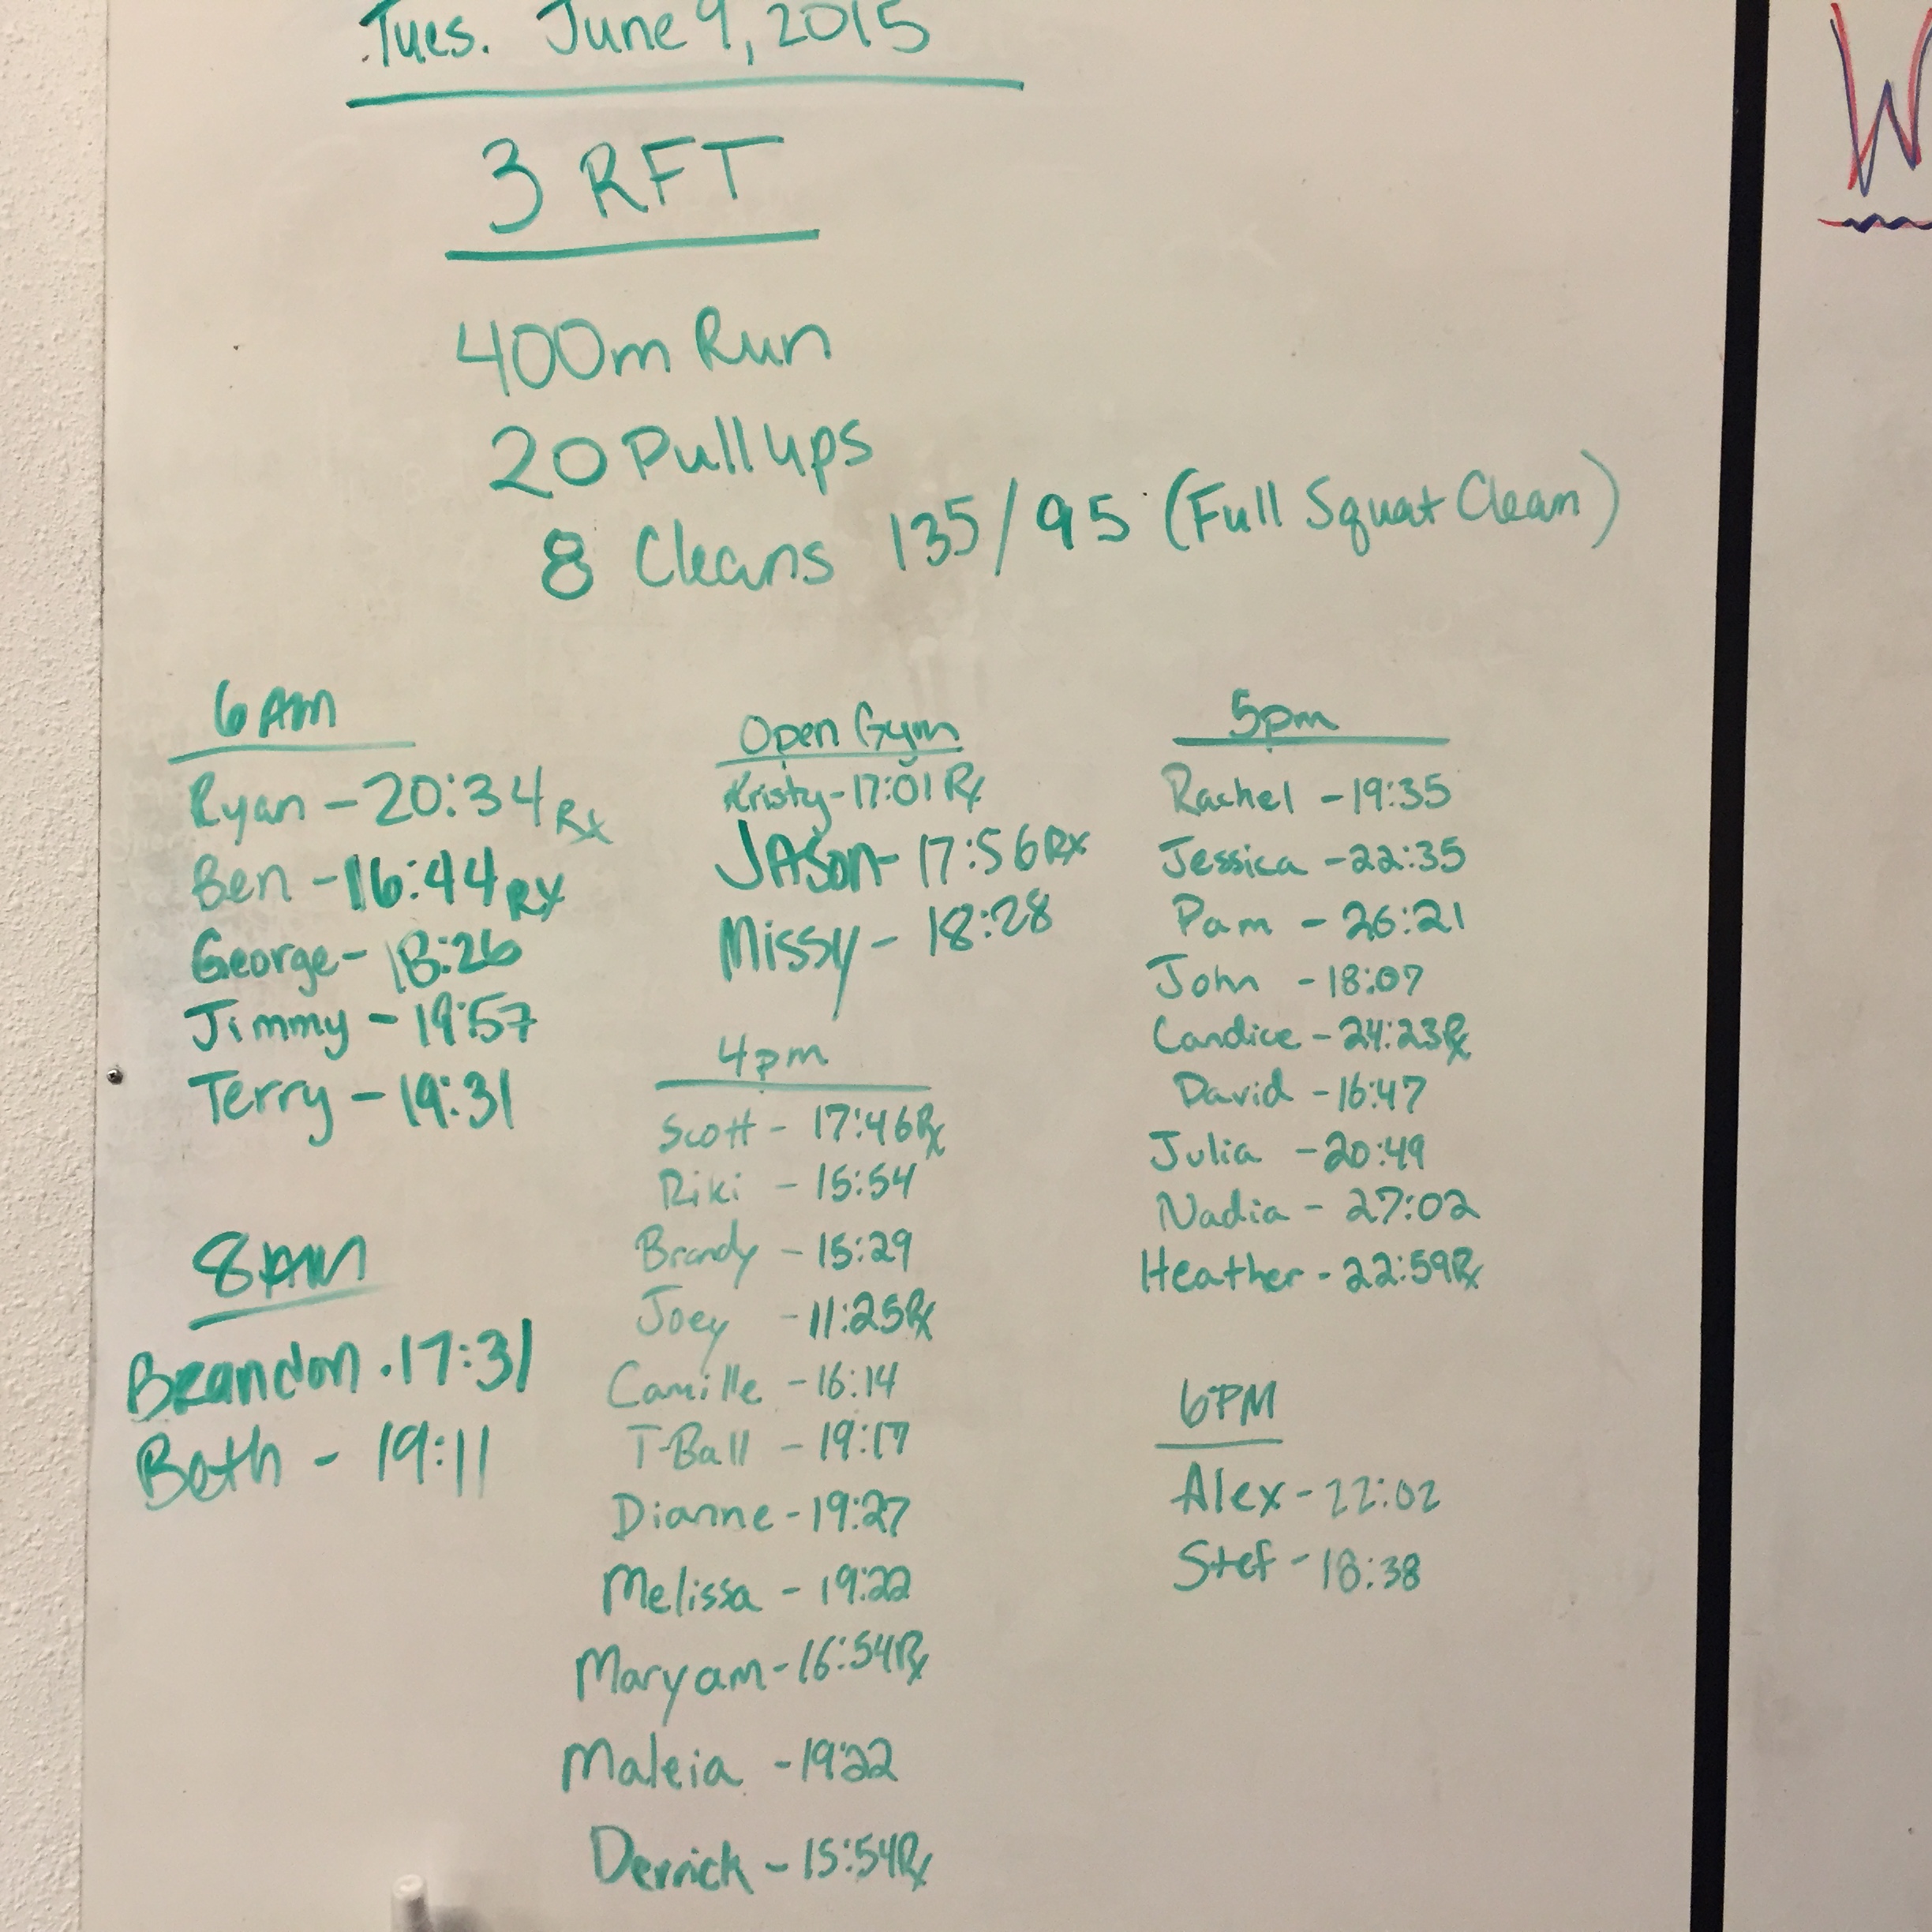 Tues. June 9, 2015
3 RFT
400m Run
20 Pull ups
8 Cleans 135/95 (Full Squat Clean)
6 AM
Ryan - 20:34 Rx
Ben - 16:44 RX
George - 18:26
Jimmy - 19:57
Terry - 19:31
8 AM
Brandon . 17:31
Beth - 19:11
Open Gym
Kristy - 17:01 Rx
JASon - 17:56 Rx
Missy - 18:28
4pm
Scott - 17:46 Rx
Riki - 15:54
Brandy - 15:29
Joey - 11:25 Rx
Camille - 16:14
T-Ball - 19:17
Dianne - 19:27
Melissa - 19:22
Maryam - 16:54 Rx
Maleia - 19:22
Derrick - 15:54 Rx
5pm
Rachel - 19:35
Jessica - 22:35
Pam - 26:21
John - 18:07
Candice - 24:23 Rx
David - 16:47
Julia - 20:49
Nadia - 27:02
Heather - 22:59 Rx
6PM
Alex - 22:02
Stef - 18:38
W